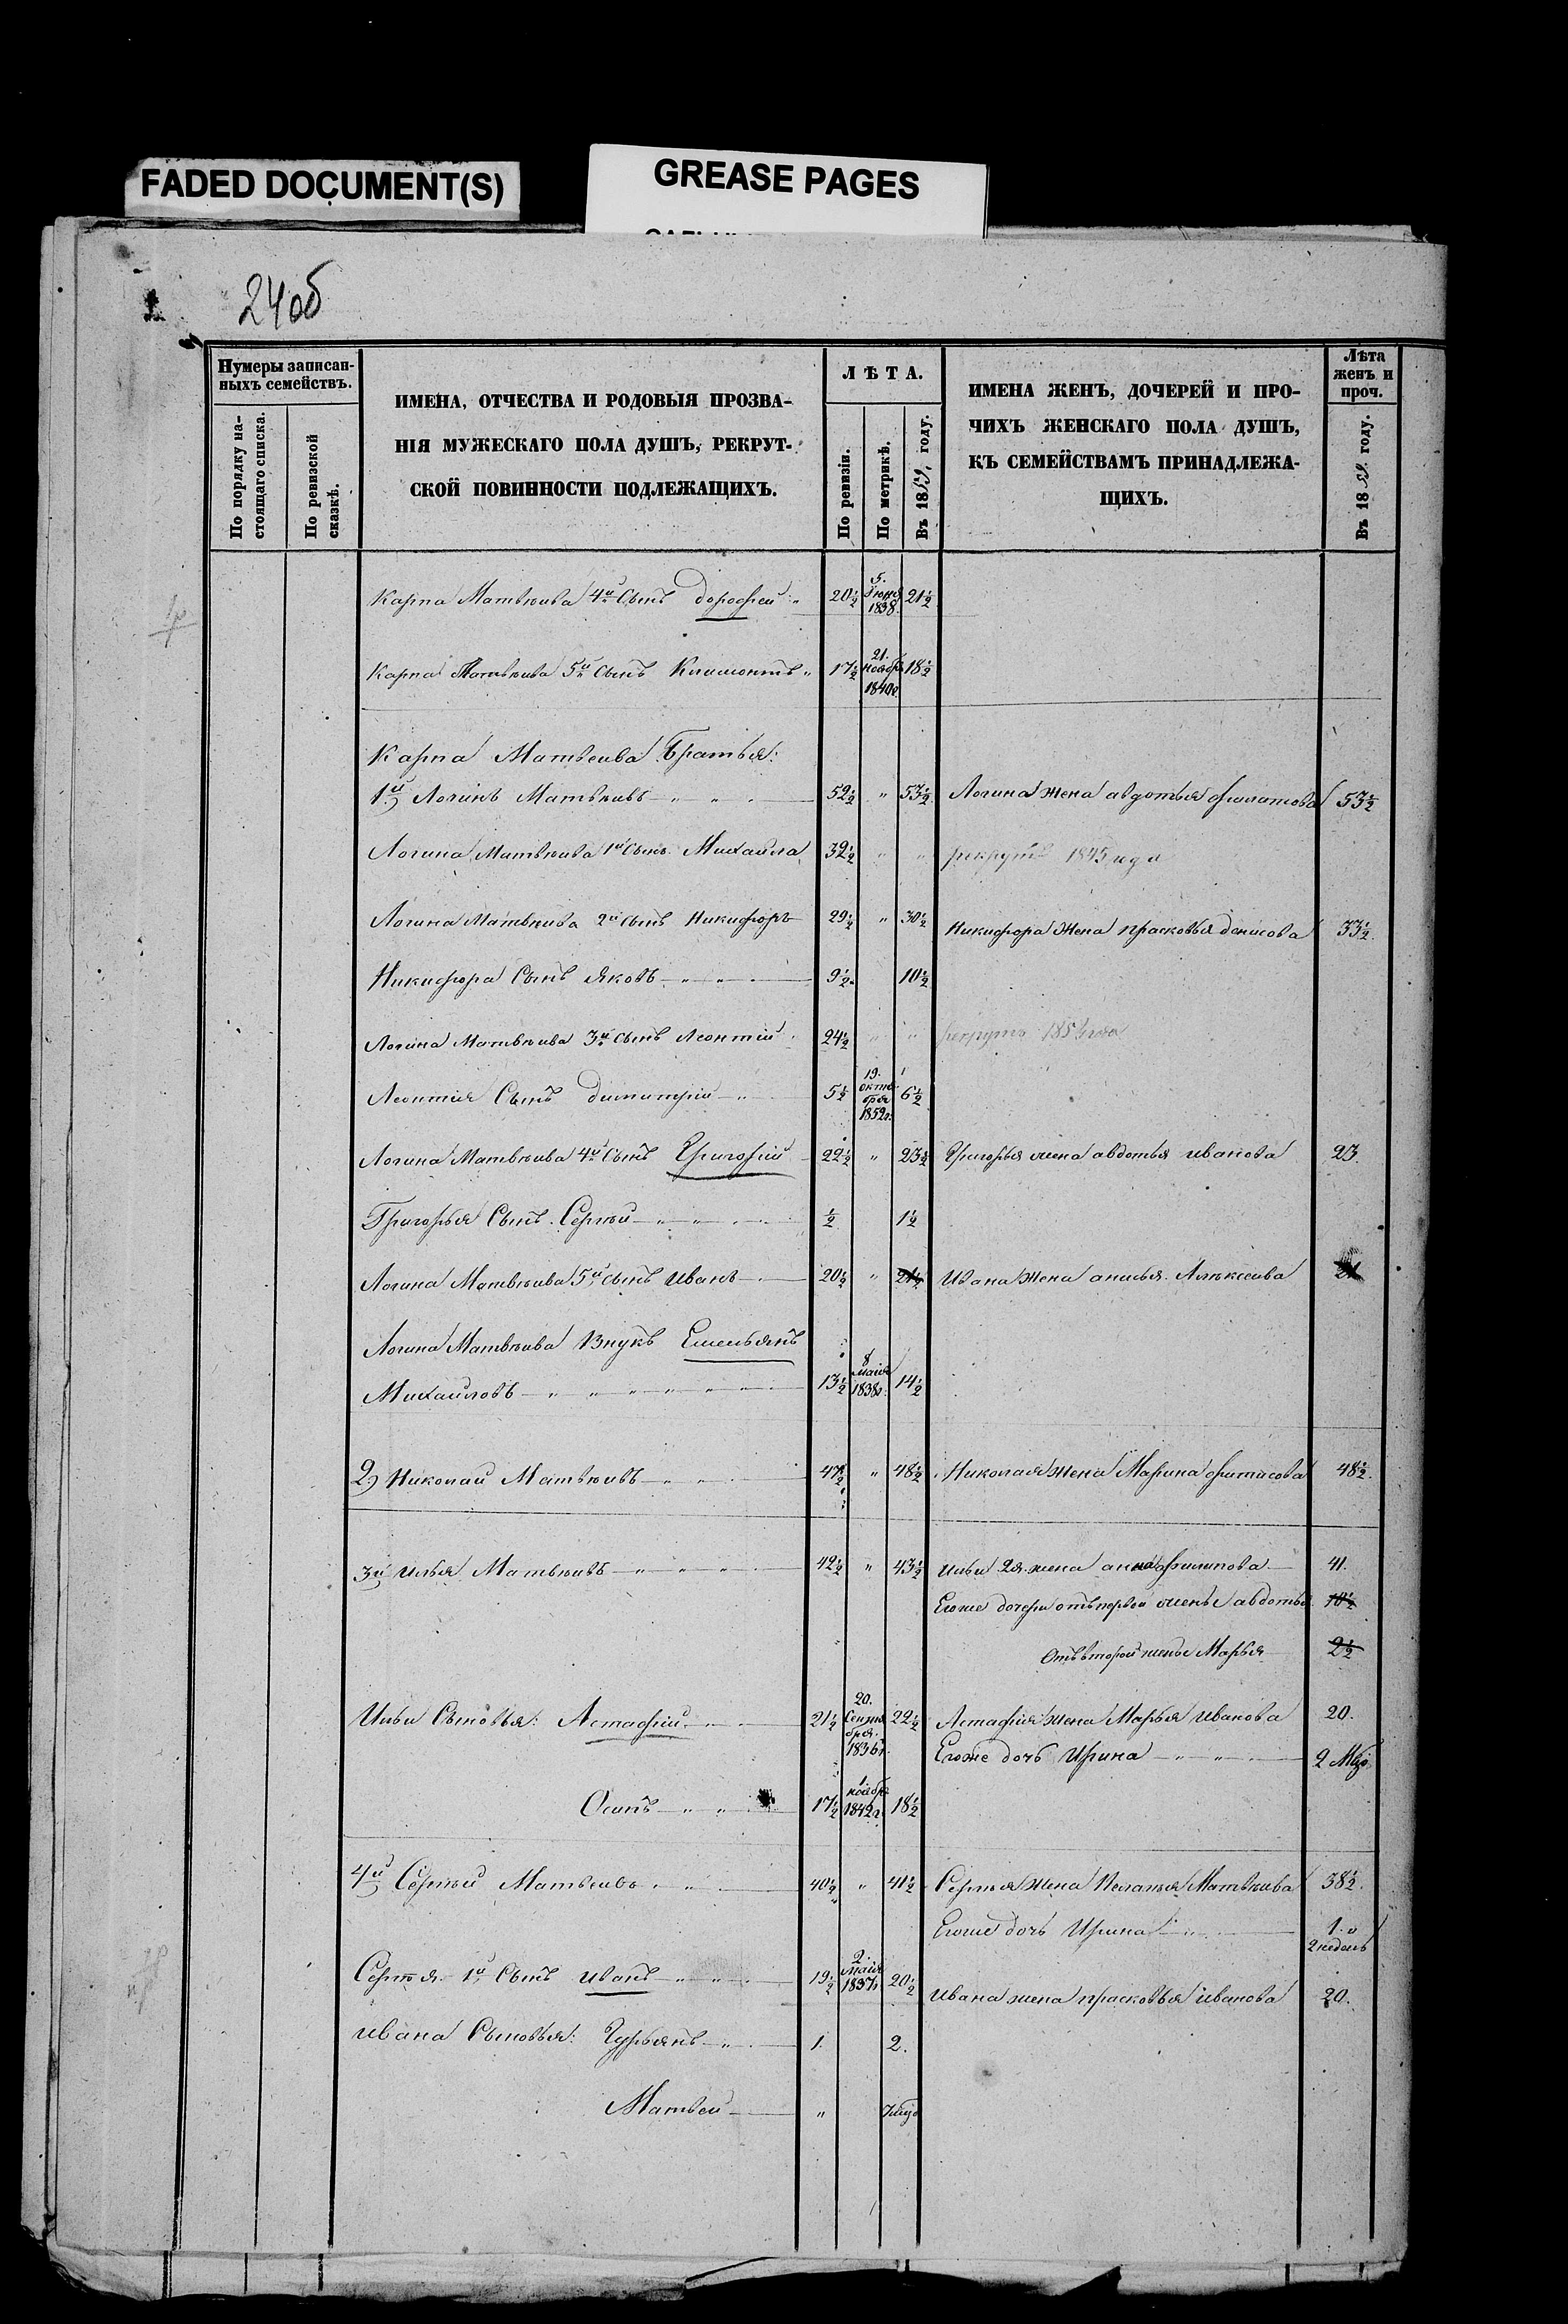 FADED DOCUMENT(S)
GREASE PAGES
24об
Нумеры записан-
ныхъ семействъ.
По порядку на-
стоящаго списка.
По ревизской
сказкѣ.
ИМЕНА, ОТЧЕСТВА И РОДОВЫЯ ПРОЗВА-
НІЯ МУЖЕСКАГО ПОЛА ДУШЪ, РЕКРУТ-
СКОЙ ПОВИННОСТИ ПОДЛЕЖАЩИХЪ.
ЛѢТА.
По ревизіи.
По метрикѣ.
Въ 1859, году.
ИМЕНА ЖЕНЪ, ДОЧЕРЕЙ И ПРО-
ЧИХЪ ЖЕНСКАГО ПОЛА ДУШЪ,
КЪ СЕМЕЙСТВАМЪ ПРИНАДЛЕЖА-
ЩИХЪ.
Лѣта
женъ и
проч.
Въ 1859 году.
Карпа Матвѣива 4й Сынъ дорофей „ 20½ 5. Іюня 1838. 21½
Карпа Матвѣива 5й Сынъ Климонтъ „ 17½ 21. ноября 1840г. 18½
Карпа Матвеива Братья:
1й Логинъ Матвѣивъ „ „ 52½ „ 53½ Логина жена авдотья филатова 53½
Логина Матвѣива 1й Сынъ Михайла 32½ „ „ рекрутъ 1845 года
Логина Матвѣива 2й Сынъ Никифоръ 29½ „ 30½ Никифора жена прасковья денисова 33½.
Никифора Сынъ яковъ „ „ 9½ 10½
Логина Матвѣива 3й Сынъ Леонтій 24½ „ „ рекрутъ года
Леонтія Сынъ димитрій „ 5½ 19. октября 1852г. 6½
Логина Матвѣива 4й Сынъ Григорій 22½ „ 23½ Григорья жена авдотья иванова 23.
Григорья Сынъ Сергѣй „ „ ½ 1½
Логина Матвѣива 5й Сынъ иванъ 20½ „ 21½ Ивана жена анисья Алѣксеива 21
Логина Матвѣива Внукъ Емельянъ
Михайловъ „ „ „ „ „ „ 13½ 8 маія 1838г. 14½
2) Николай Матвѣивъ „ „ 47½ „ 48½ Николая жена Марина фитисова 48½.
3й илья Матвѣивъ „ „ „ 42½ „ 43½ ильи 2я жена анна филипова 41.
Егоже дочери отъ первой жены авдотья 10½
Отъ второй жены Марья 2½
Ильи Сыновья: Астафій „ 21½ 20. Сентября. 1836г. 22½ Астафія жена Марья иванова 20.
Егоже дочь Ирина „ „ 2 Мѣс
Осипъ „ „ 17½ 1 ноябр. 1842г. 18½
4й Сергѣй Матвѣивъ „ „ 40½ „ 41½ Сергѣя жена Пелагья Матвѣива 38½.
Егоже дочь Ирина „ 1. и 2 недель
Сергѣя 1й Сынъ иванъ „ „ 19½ 2. маія 1837г. 20½ ивана жена прасковья иванова 20.
ивана Сыновья: Гурьянъ „ 1. 2.
Матвей „